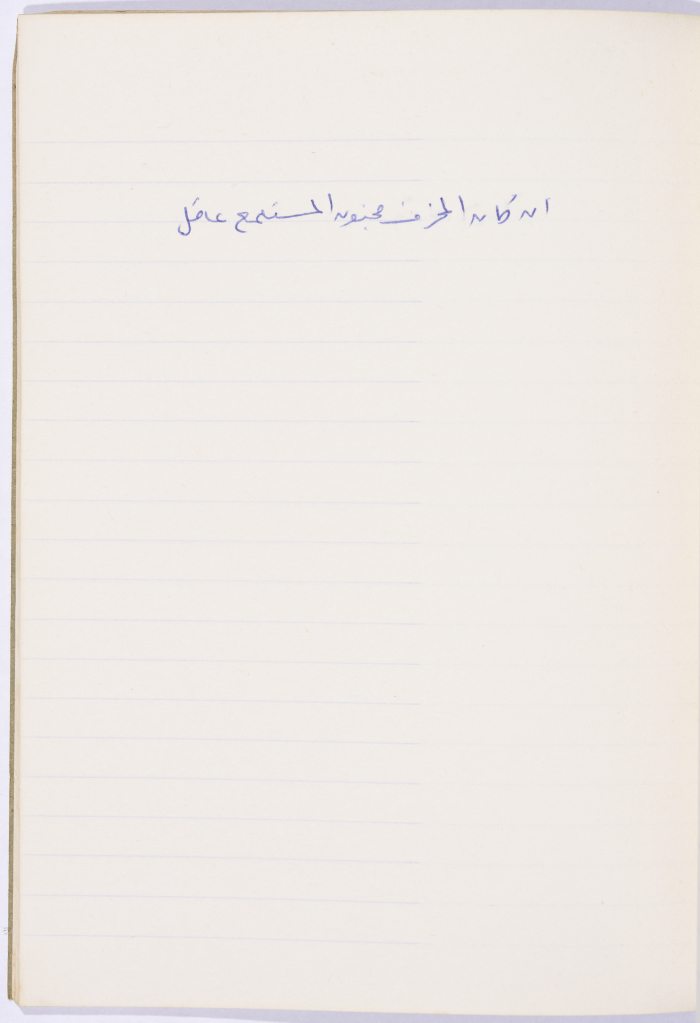 ان كان المخرف مجنون المستمع عاقل